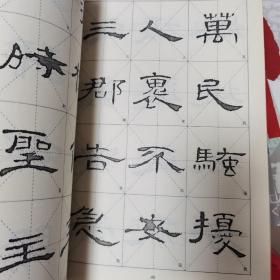 萬民騷擾
人裹不安
三郡告急
聖主